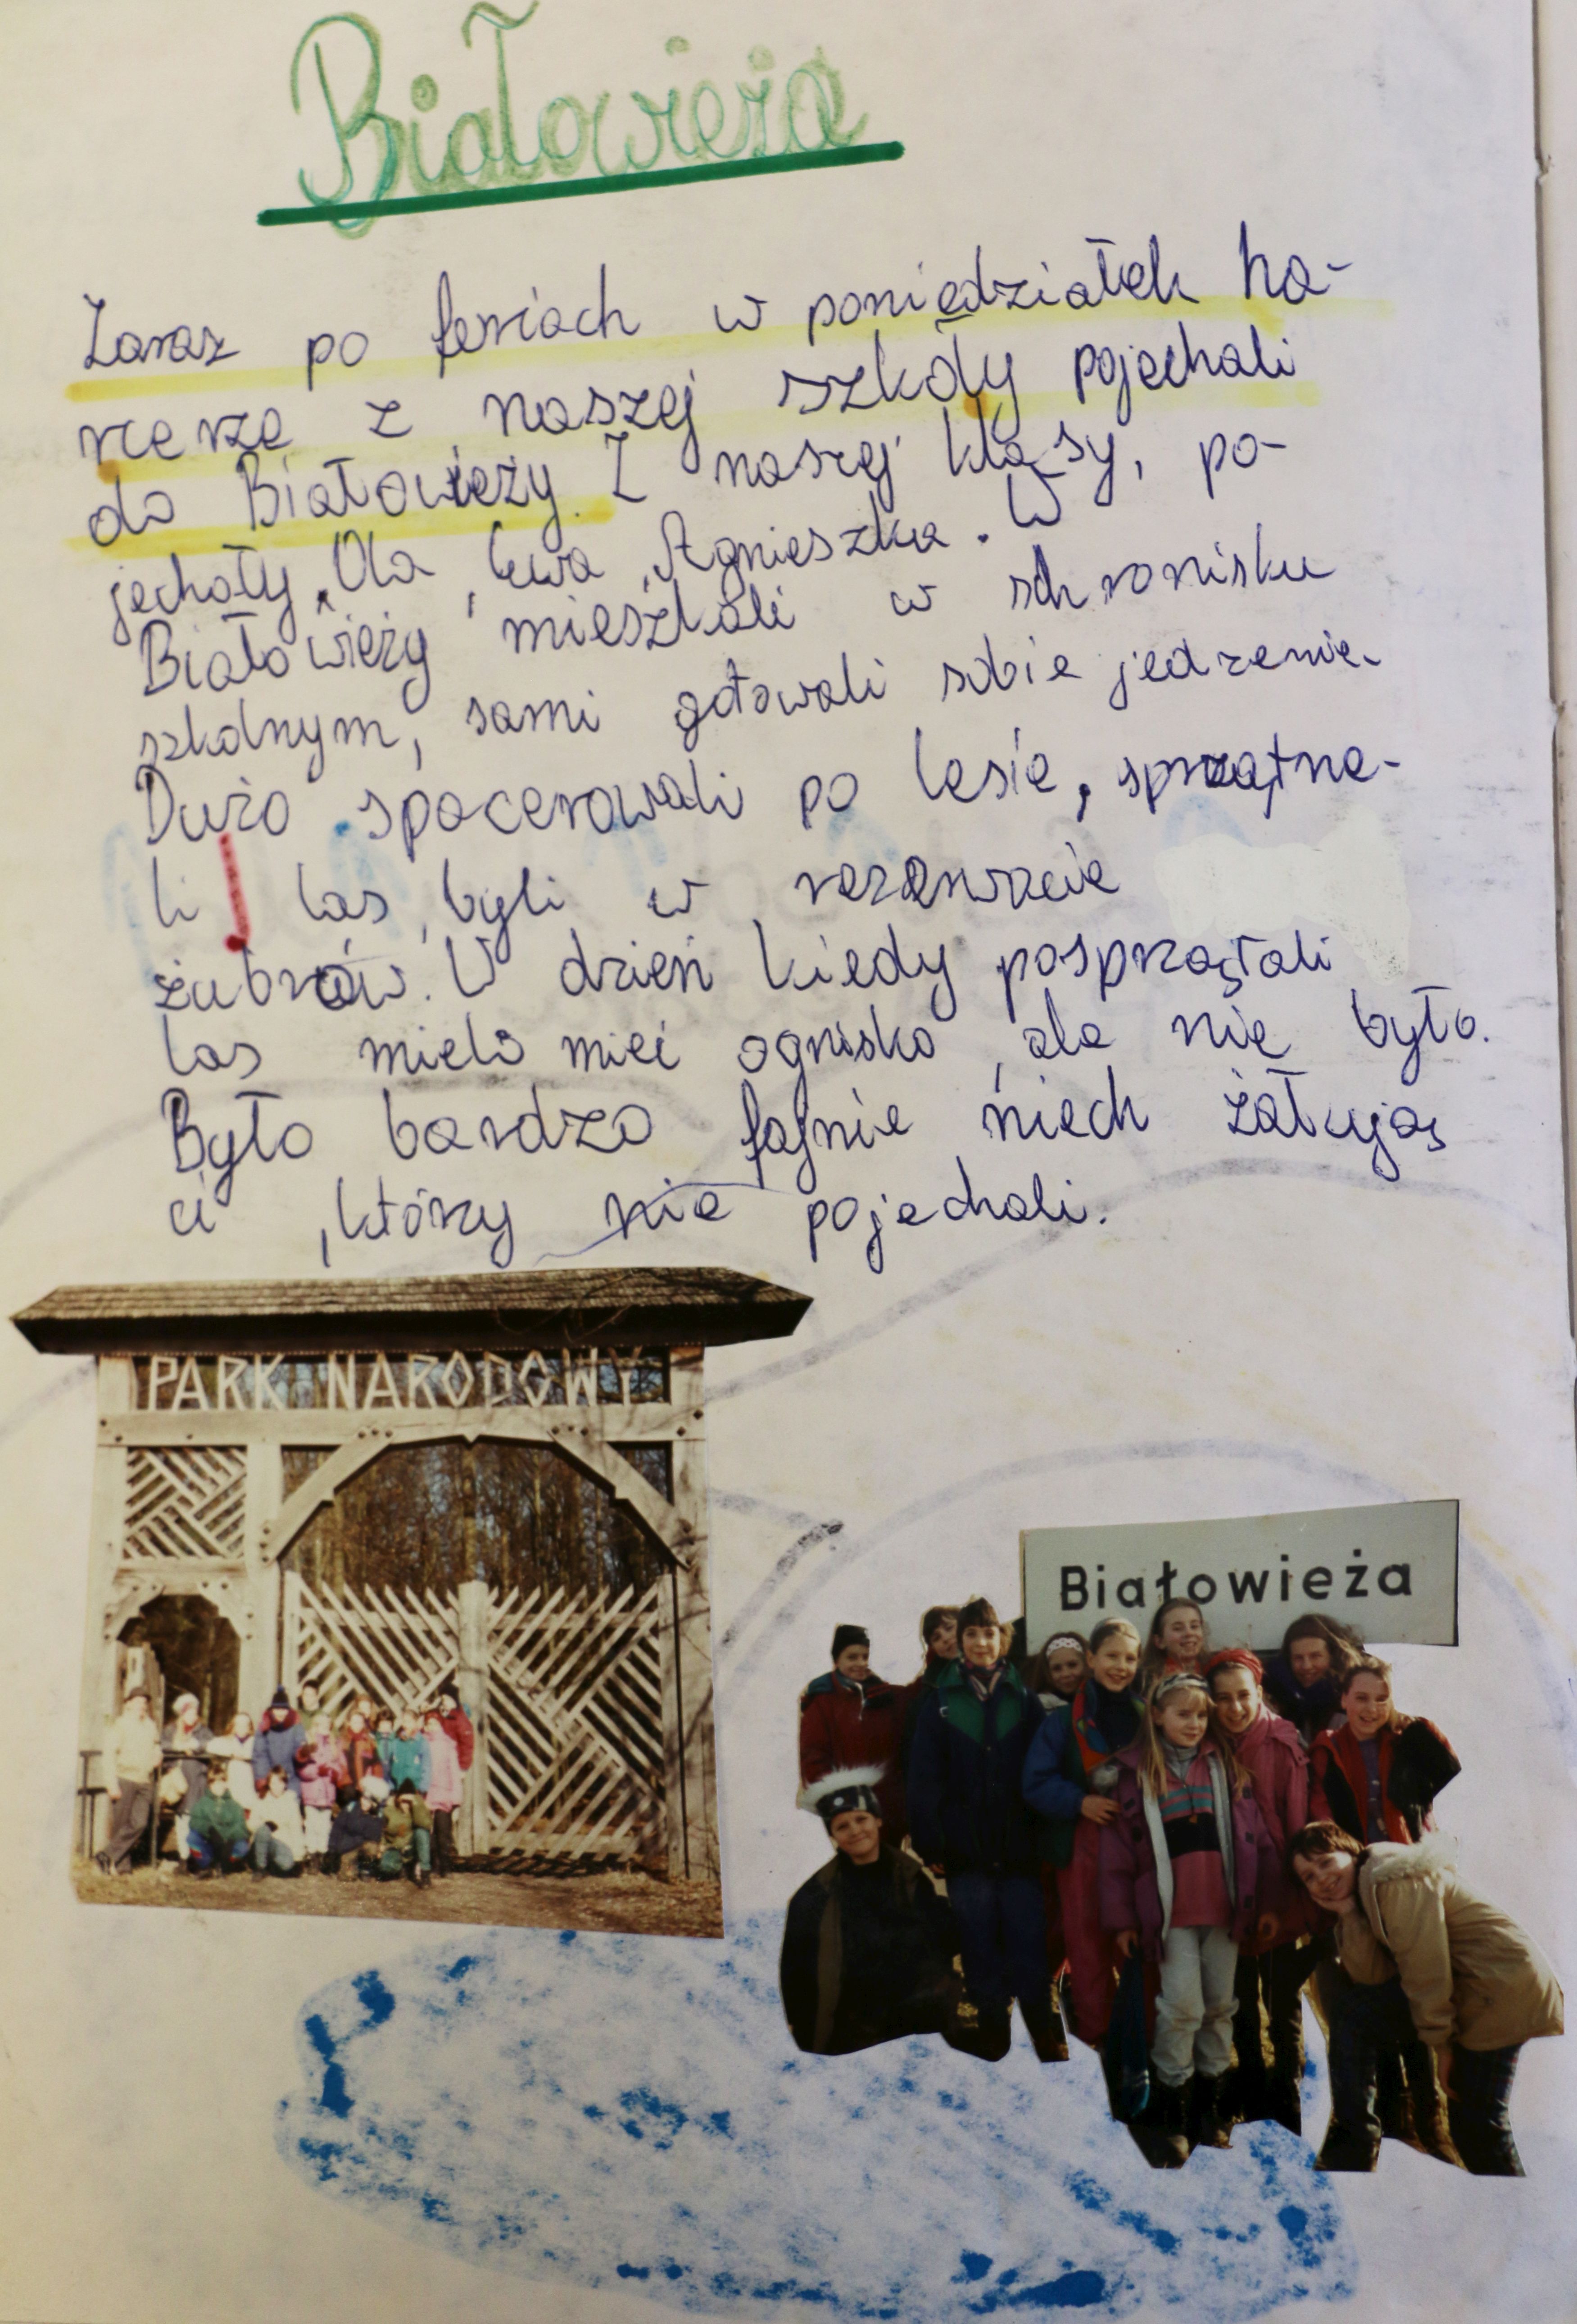 Białowieża
Zaraz po feriach w poniedziałek ha-
rcerze z naszej szkoły pojechali
do Białowieży. Z naszej klasy, po-
jechały Ola, Ewa, Agnieszka. W
Białowieży mieszkali w schronisku
szkolnym, sami gotowali sobie jedzenie.
Dużo spacerowali po lesie, sprząta-
li las, byli w rezerwacie
żubrów. W dzień kiedy posprzątali
las mieli mieć ognisko, ale nie było.
Było bardzo fajnie, niech żałują
ci, którzy nie pojechali.
PARK NARODOWY
Białowieża